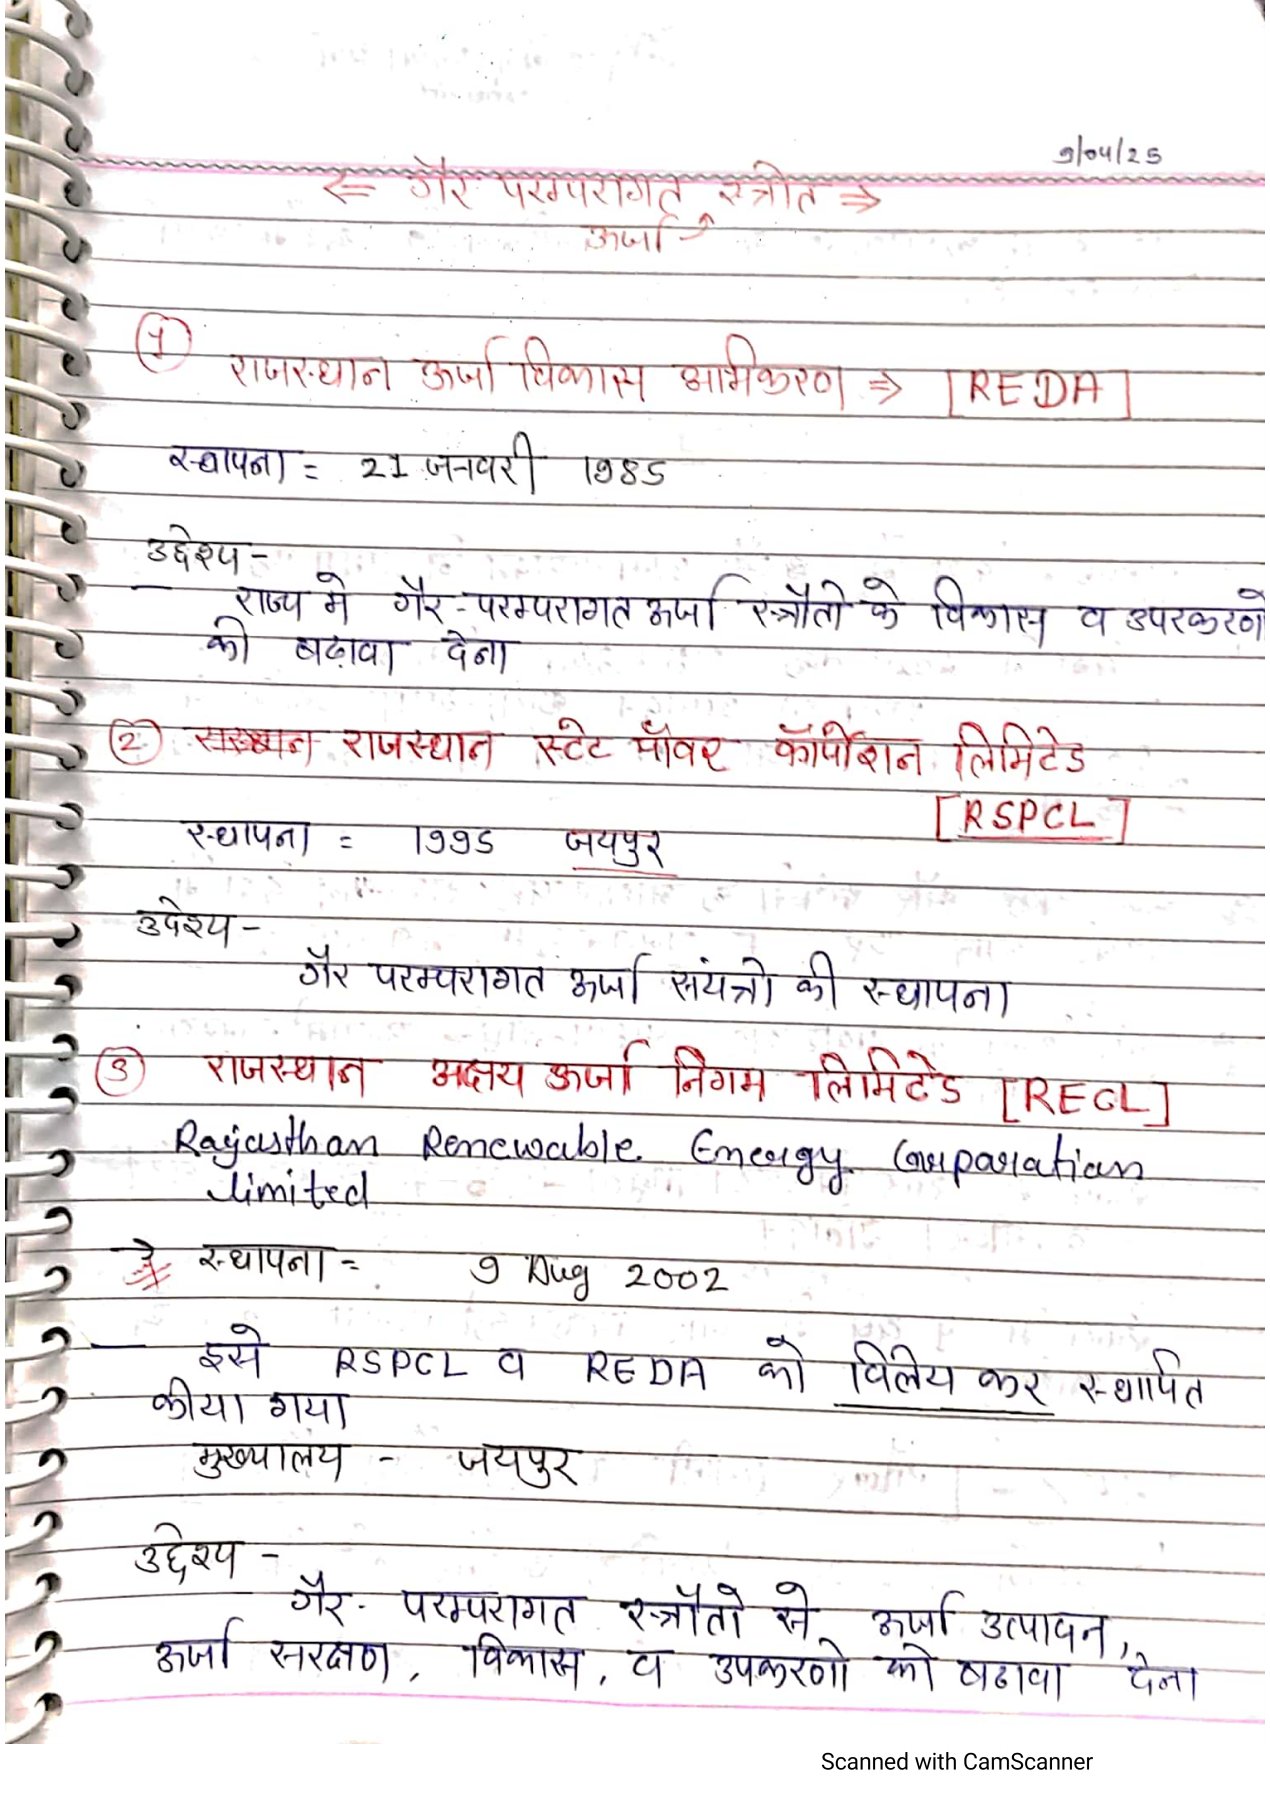 9/04/25
⇐ गैर परम्परागत स्त्रोत ⇒
ऊर्जा
① राजस्थान ऊर्जा विकास अभिकरण ⇒ [REDA]
स्थापना = 21 जनवरी 1985
उद्देश्य -
राज्य मे गैर-परम्परागत ऊर्जा स्त्रौतो के विकास व उपरकरणो
को बढ़ावा देना
② राजस्थान स्टेट पॉवर कॉर्पोरेशन लिमिटेड
[RSPCL]
स्थापना = 1995 जयपुर
उदेश्य -
गैर परम्परागत ऊर्जा संयंत्रो की स्थापना
③ राजस्थान अक्षय ऊर्जा निगम लिमिटेड [RECL]
Rajasthan Renewable Energy Corparation
limited
स्थापना = 9 Aug 2002
इसे RSPCL व REDA को विलेय कर स्थापित
कीया गया
मुख्यालय - जयपुर
उद्देश्य -
गैर- परम्परागत स्त्रौतो से ऊर्जा उत्पादन,
ऊर्जा सरक्षण, विकास, व उपकरणो को बढावा देना
Scanned with CamScanner